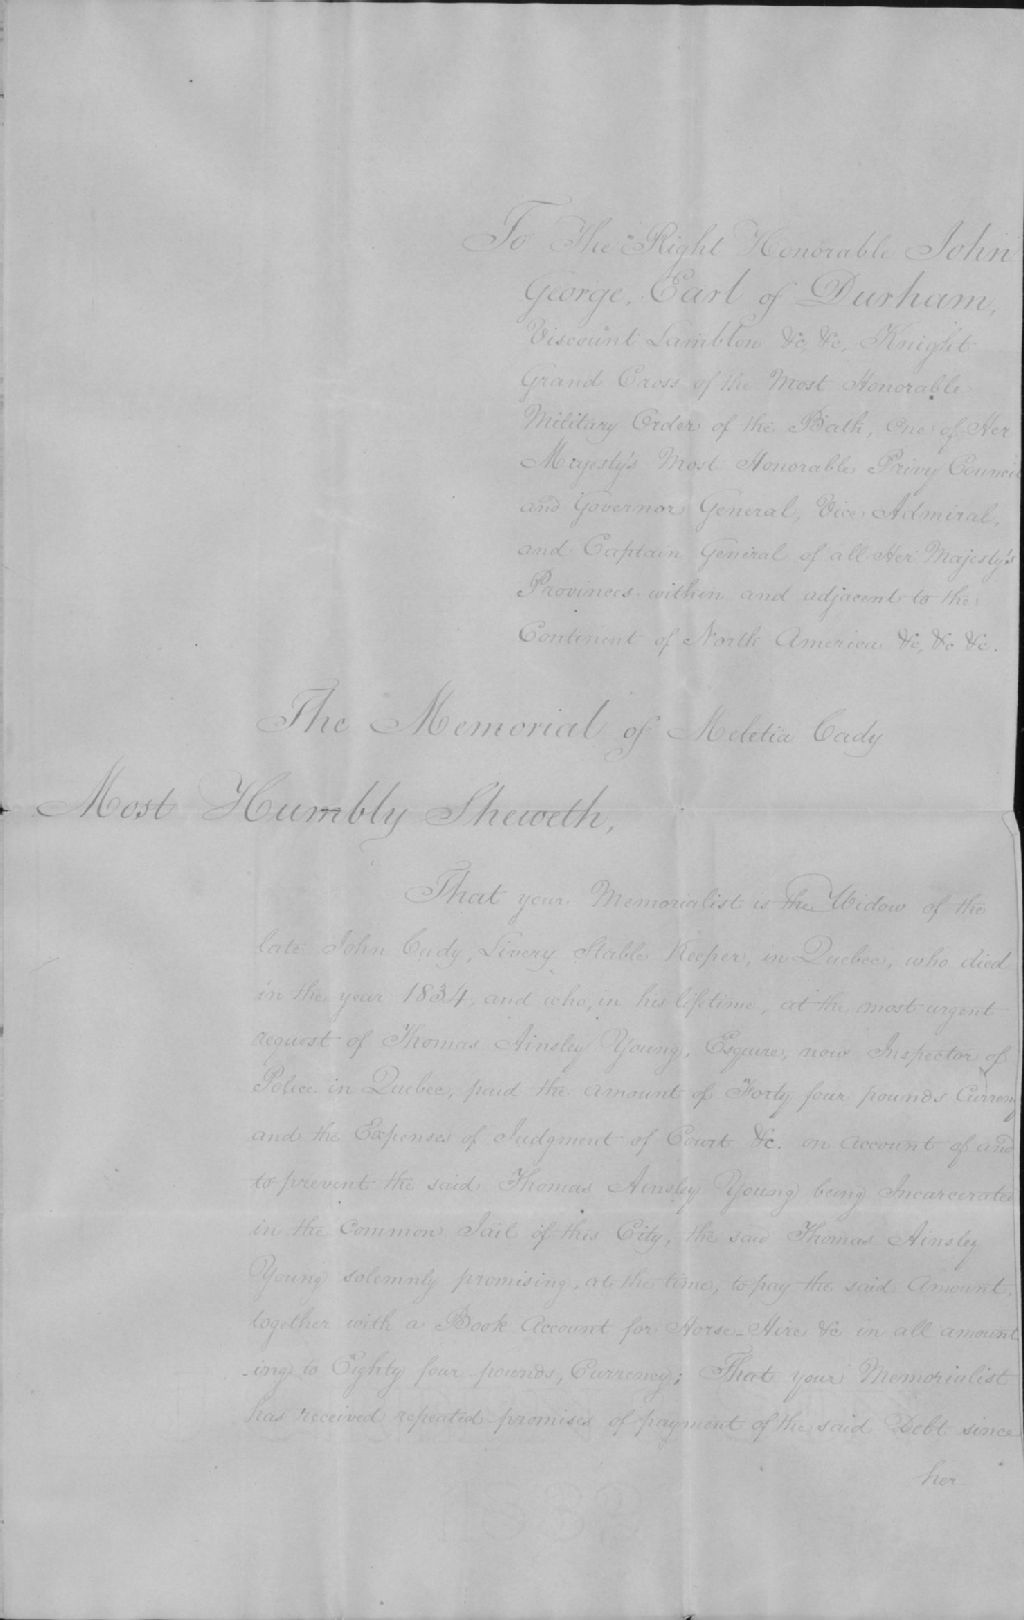 To The Right Honorable John
George, Earl of Durham,
Viscount Lambton &c, &c, Knight
Grand Cross of the Most Honorable
Military Order of the Bath, One of Her
Majesty's Most Honorable Privy Council
and Governor General, Vice Admiral,
and Captain General of all Her Majesty's
Provinces within and adjacent to the
Continent of North America &c, &c &c.
The Memorial of Meletia Cady
Most Humbly Sheweth,
That your Memorialist is the Widow of the
late John Cady, Livery Stable Keeper, in Quebec, who died
in the year 1834, and who, in his lifetime, at the most urgent
request of Thomas Ainsley Young, Esquire, now Inspector of
Police in Quebec, paid the amount of Forty four pounds Currency
and the Expenses of Judgment of Court &c. on account of and
to prevent the said Thomas Ainsley Young being Incarcerated
in the Common Jail of this City, the said Thomas Ainsley
Young solemnly promising, at the time, to pay the said Amount,
together with a Book Account for Horse-Hire &c in all amount
-ing to Eighty four pounds, Currency; That your Memorialist
has received repeated promises of payment of the said Debt since
her